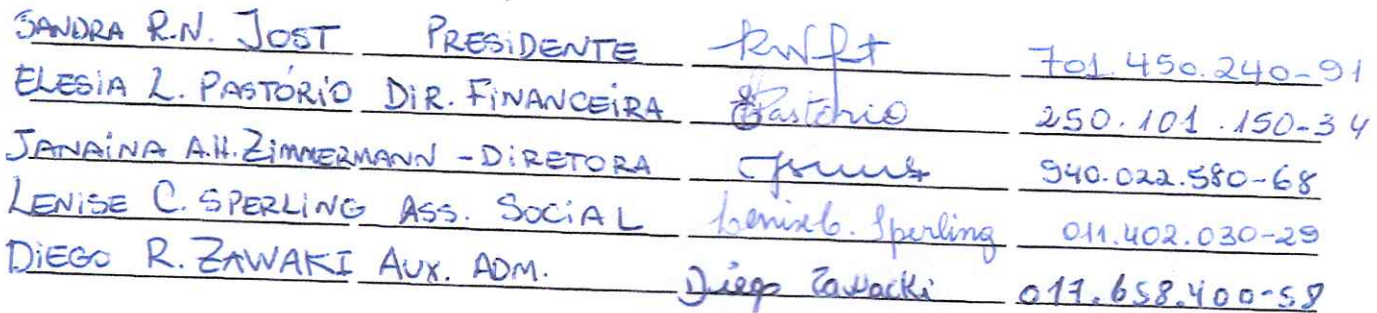 SANDRA R.N. JOST PRESIDENTE 701.450.240-91
ELESIA L. PASTÓRIO DIR. FINANCEIRA Pastorio 250.101.150-34
JANAINA A.H. ZIMMERMANN - DIRETORA 940.022.580-68
LENISE C. SPERLING ASS. SOCIAL Lenise C. Sperling 011.402.030-29
DIEGO R. ZAWAKI AUX. ADM. Diego Zawacki 017.658.400-58